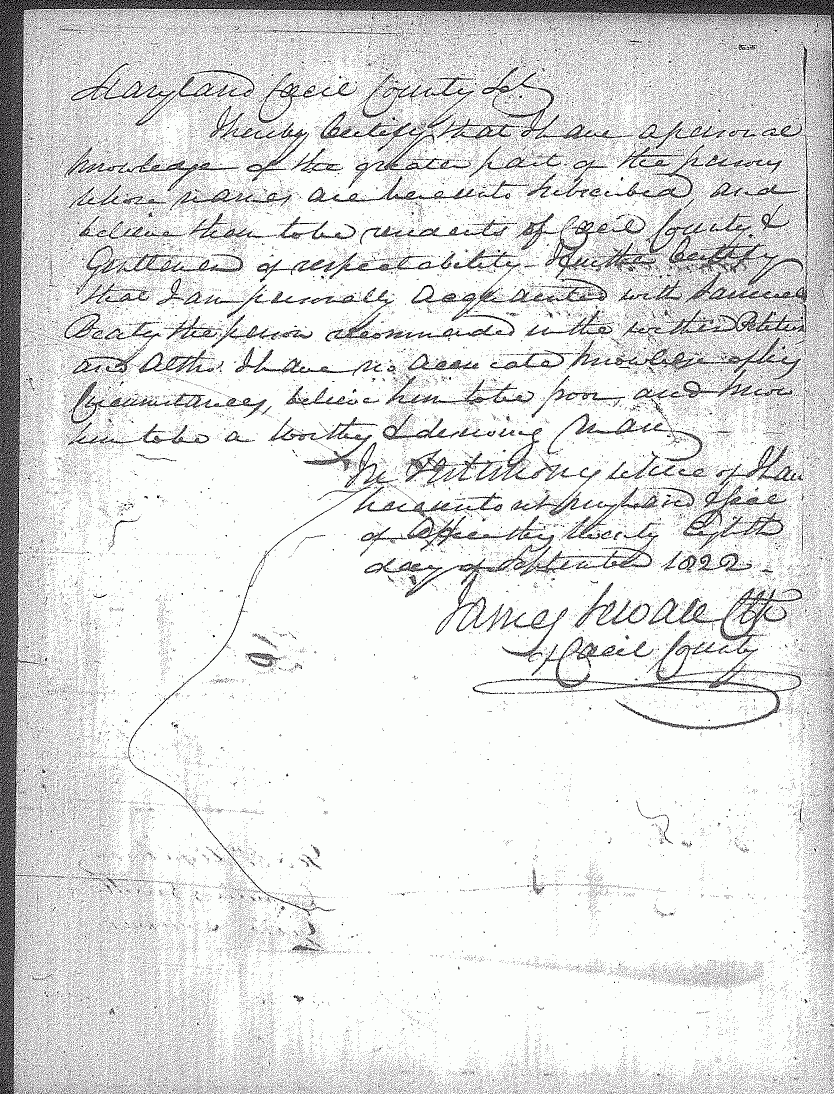 Maryland Cecil County Sct
I hereby Certify that I have a personal
knowledge of the greater part of the persons
whose names are hereunto subscribed, and
believe them to be residents of Cecil County &
Gentlemen of respectability Further Certify
that I am personally acquainted with Samuel
Beaty the person recommended in the within Petition
and altho. I have no accurate knowledge of his
Circumstances, believe him to be poor, and know
him to be a worthy & deserving man
In Testimony whereof I have
hereunto set my hand & seal
of office this twenty Eighth
day of September 1822 -
James Sewall Clk
of Cecil County